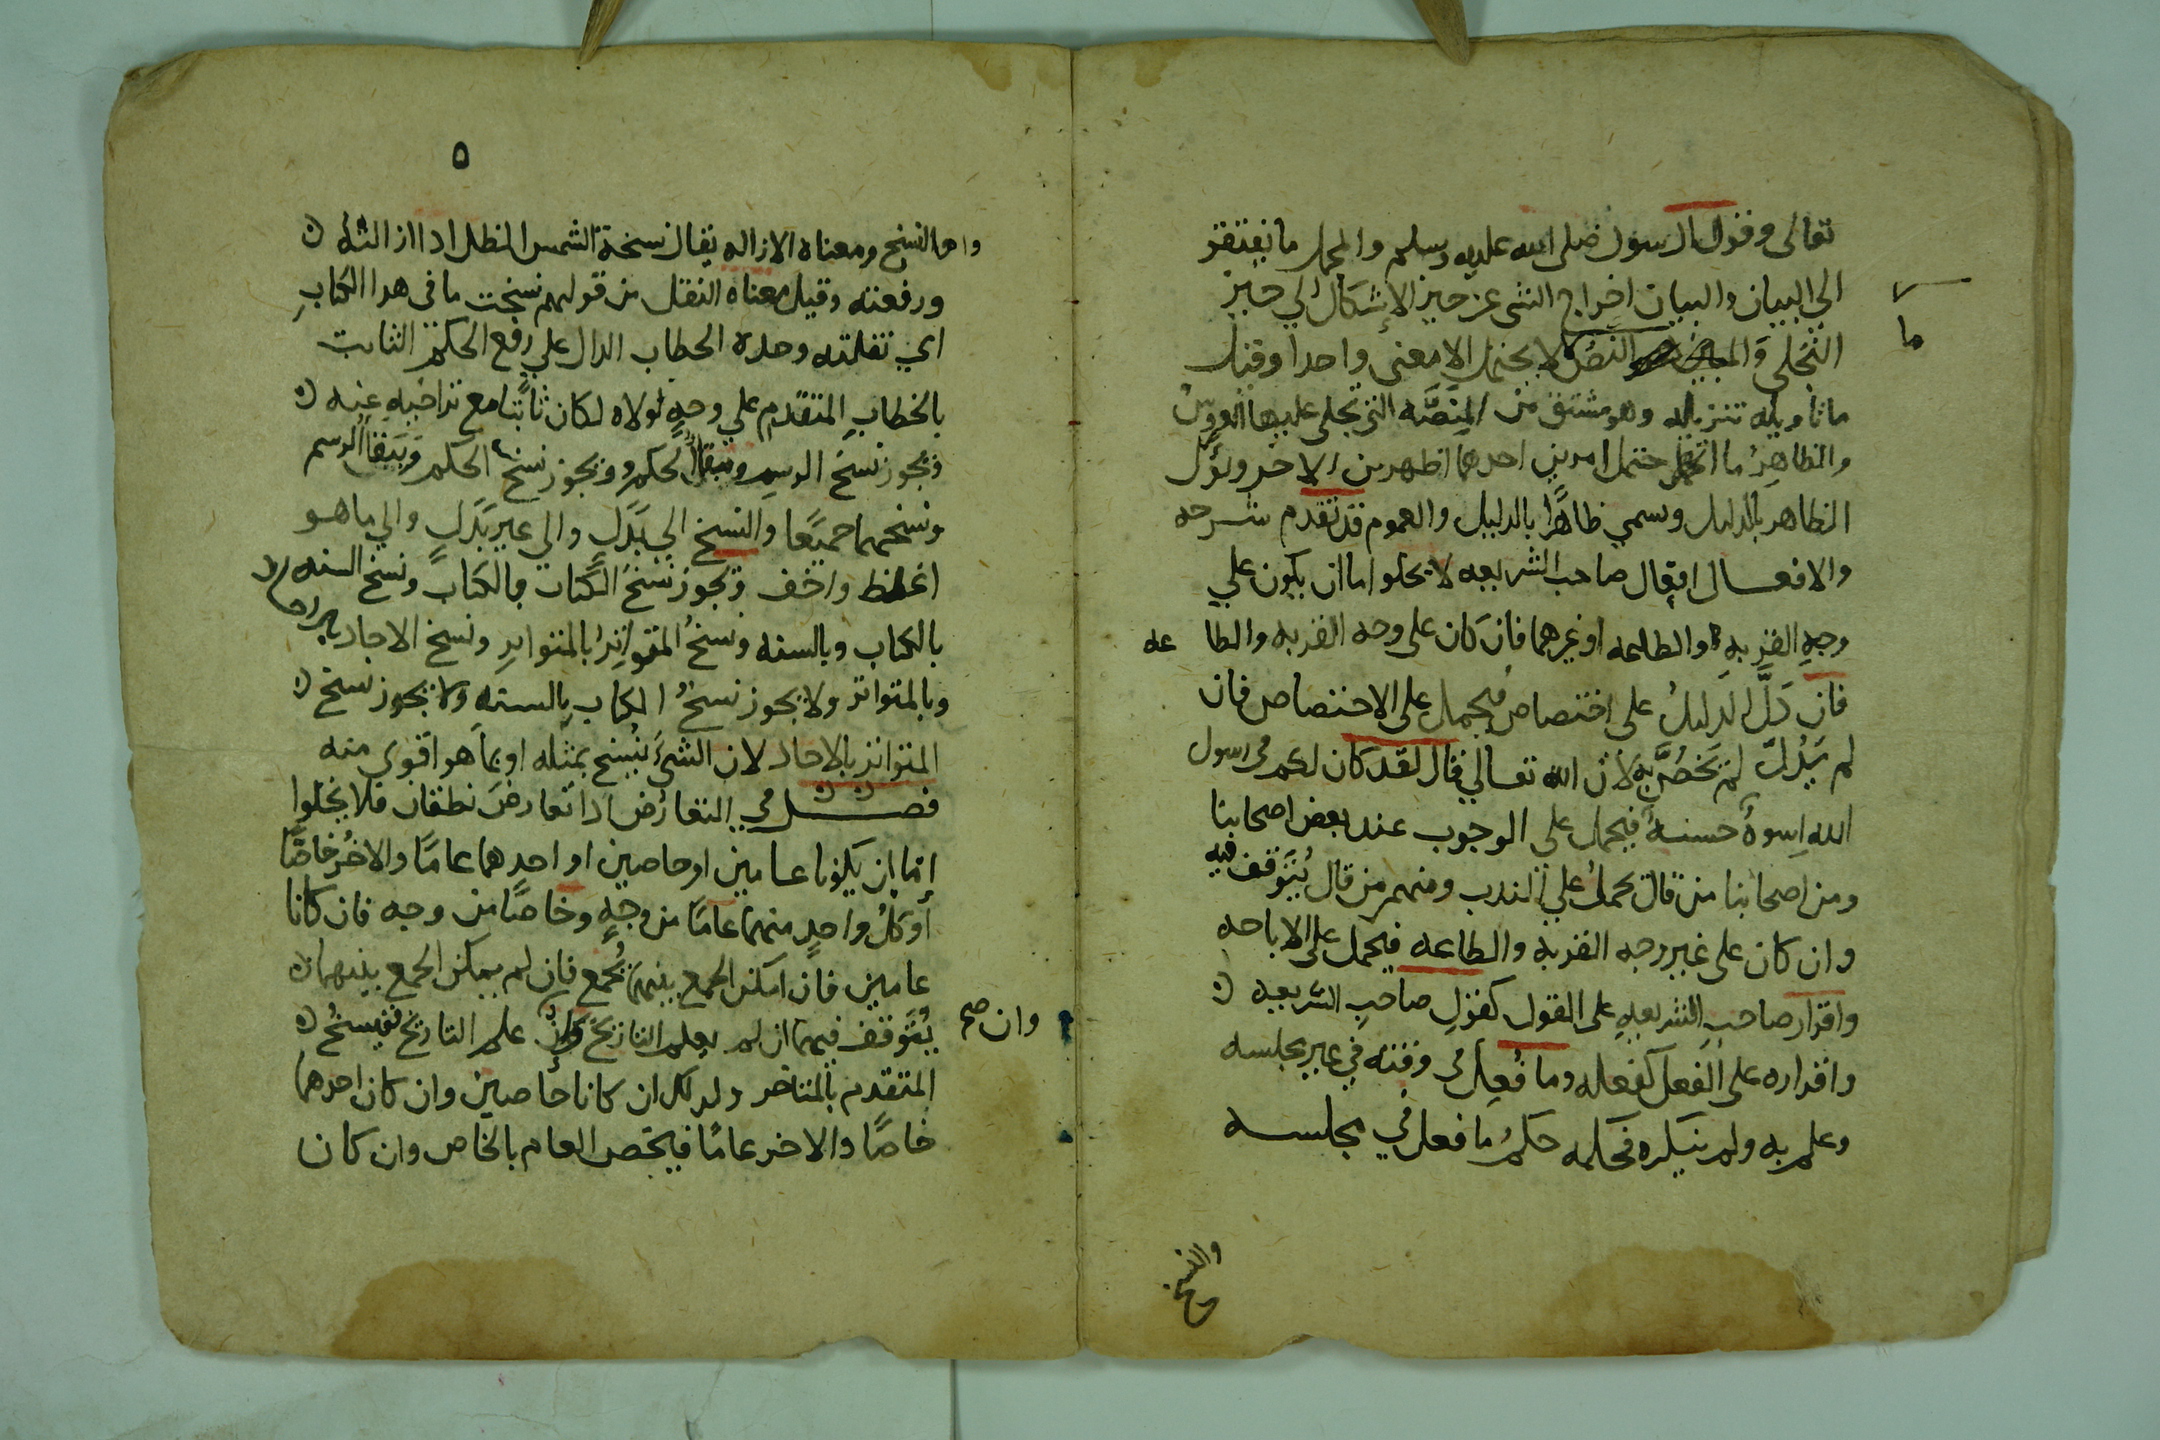 تعالى وقول الرسول صلى الله عليه وسلم والمجمل ما يفتقر
الى البيان والبيان اخراج الشي عن حيز الإشكال الي حيز
التجلي والنص ما لا يحتمل الا معنى واحدا وقيل
ما تاويله تنزيله وهو مشتق من المنصَّه التي تجلى عليها العروس
والظاهر ما احتمل امرين احدهما اظهر من الاخر ويؤل
الظاهر بالدليل وسمي ظاهرًا بالدليل والعموم قد تقدم شرحه
والافعال افعال صاحب الشريعه لا يخلوا اما ان يكون علي
وجه القربه والطاعه او غيرهما فان كان على وجه القربه والطاعه
فان دَلَّ الدليلُ على اختصاص فيحمل على الاختصاص فان
لم يَدُلَّ لم يَخصَّ به لان الله تعالي قال لقد كان لكم في رسول
الله اسوةٌ حسنةٌ فيحمل على الوجوب عند بعض اصحابنا
ومن اصحابنا من قال يحمل علي الندب ومنهم من قال يُتَوَقف فيه
وان كان على غير وجه القربه والطاعه فيحمل على الاباحه
واقرار صاحب الشريعه على القول كقول صاحب الشريعه
واقراره على الفعل كفعله وما فُعِل في وقته في غير مجلسه
وعلم به ولم ينكره فحكمه حكمُ ما فعل في مجلسه
والنسخ
٥
واما النسخ ومعناه الازاله يقال نسخة الشمس الظل اذا ازالته
ورفعته وقيل معناه النقل من قولهم نسخت ما في هذا الكتاب
اي نقلته وحده الخطاب الدال علي رفع الحكم الثابت
بالخطاب المتقدم علي وجهٍ لولاه لكان ثابتًا مع تراخيه عنه
ويجوز نسخ الرسم وبقا الحكم ويجوز نسخ الحكم ويَبقا الرسم
ونسخهما جميعًا والنسخ الى بَدَلٍ والي غير بَدَلٍ والي ما هو
اغلظ واخف ويجوز نسخ الكتاب بالكتاب ونسخ السنه
بالكتاب وبالسنه ونسخُ المتواتر بالمتواتر ونسخ الاحاد بالاحاد
وبالمتواتر ولا يجوز نسخُ الكتاب بالسنه ولا يجوز نسخ
المتواتر بالاحاد لان الشيَ يُنسخ بمثله او بما هو اقوى منه
فصل في التعارُض اذا تعارضَ نطقان فلا يخلوا
امّا ان يكونا عامين او خاصين او احدهما عامًّا والاخرُ خاصًّا
أو كلُّ واحدٍ منهما عامًا من وجهٍ وخاصًا من وجه فان كانا
عامين فان امكن الجمع بينهما يُجمع فان لم يمكن الجمع بينهما
يُتَوقف فيهما ان لم يعلم التاريخُ وان علم التاريخ فينسخُ
وان صح
المتقدم بالمتاخر وكذلك ان كانا خاصين وان كان احدهما
خاصًا والاخر عامًا فيخص العام بالخاص وان كان